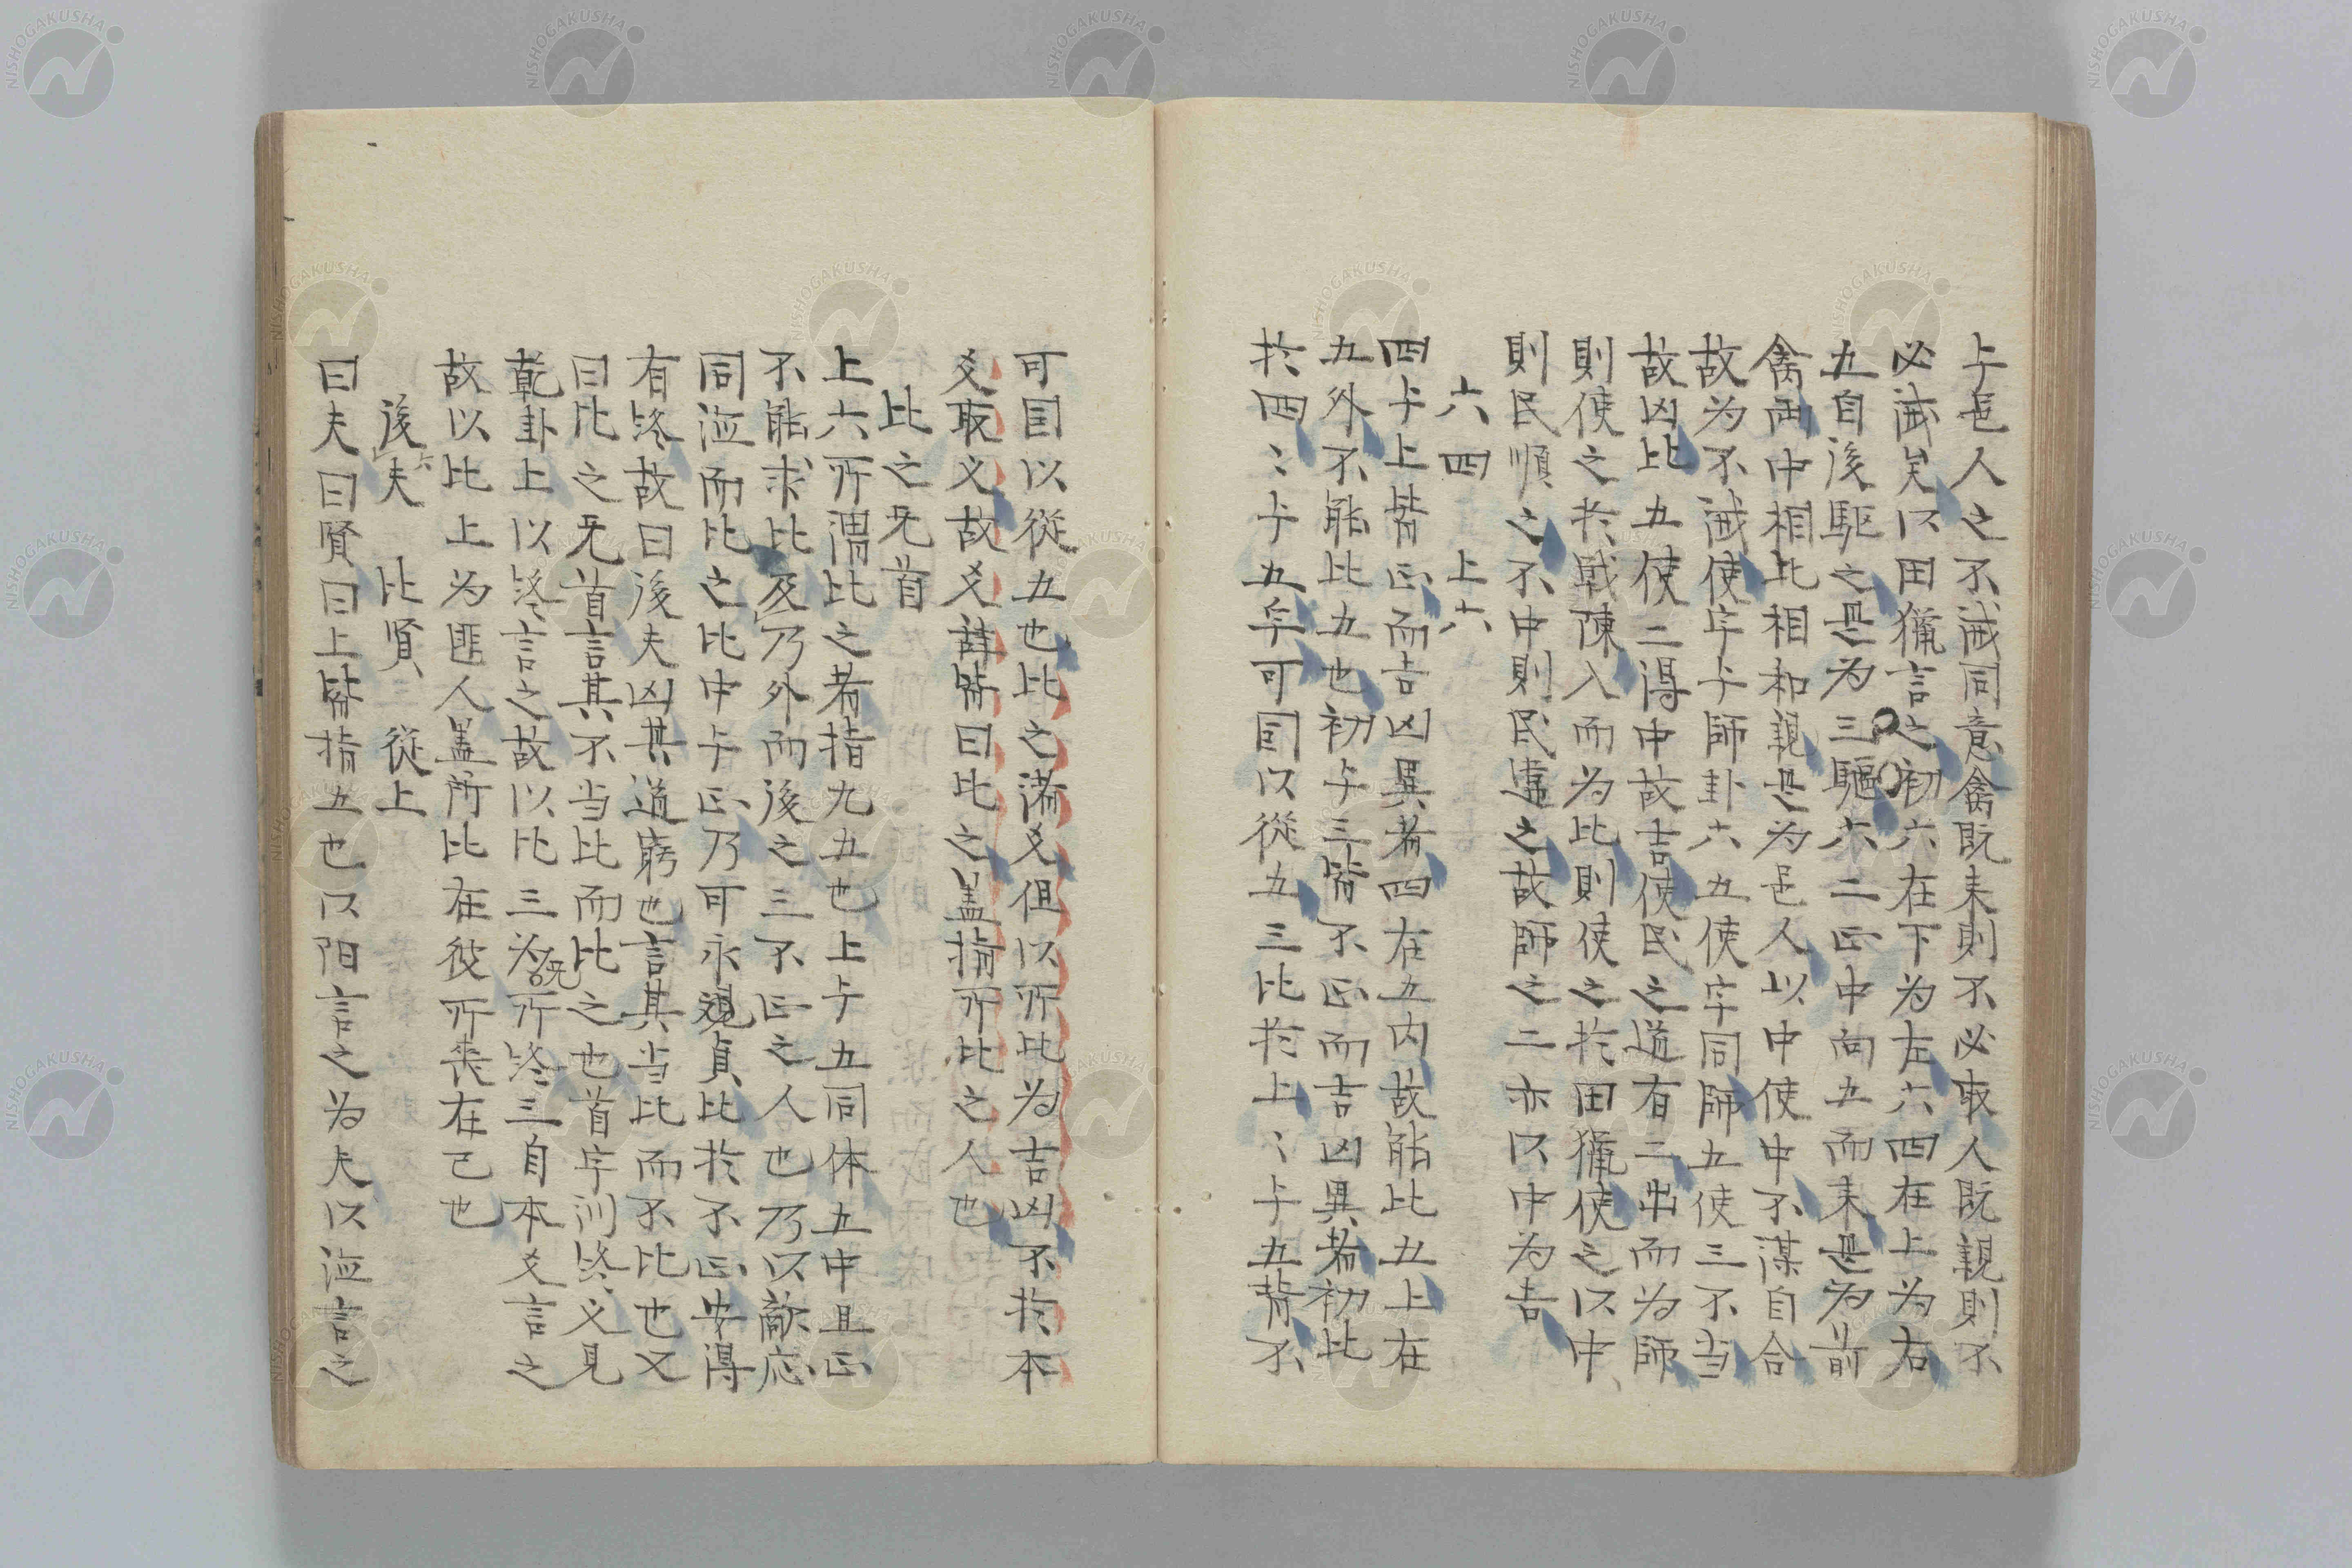 与邑人之不誡同意禽既来則不必取人既親則不
必誡矣以田猟言之初六在下為左六四在上為右
五自後駆之是為三驅六二正中向五而来是為前
禽両中相比相和親是為邑人以中使中不謀自合
故為不誡使字与師卦六五使字同師五使三不当
故凶比五使二得中故吉使民之道有二出而為師
則使之於戦陳入而為比則使之於田猟使之以中
則民順之不中則民違之故師之二亦以中為吉
六四 上六
四与上皆正而吉凶異者四在五内故能比五上在
五外不能比五也初与三皆不正而吉凶異者初比
於四〻与五孚可因以従五三比於上〻与五背不
可因以從五也比之諸爻但以所比為吉凶不於本
爻取义故爻辞皆曰比之蓋指所比之人也
比之无首
上六所謂比之者指九五也上与五同体五中且正
不能求比及乃外而後之三不正之人也乃以敵応
同涖而比之比中与正乃可永親貞比於不正安得
有終故曰後夫凶其道窮也言其当比而不比也又
曰比之无首言其不当比而比之也首字訓終义見
乾卦上以終言之故以比三為无所終三自本爻言之
故以比上為匪人蓋所比在彼所喪在己也
後夫 比賢 從上
曰夫曰賢曰上皆指五也以阳言之為夫以涖言之
NISHOGAKUSHA